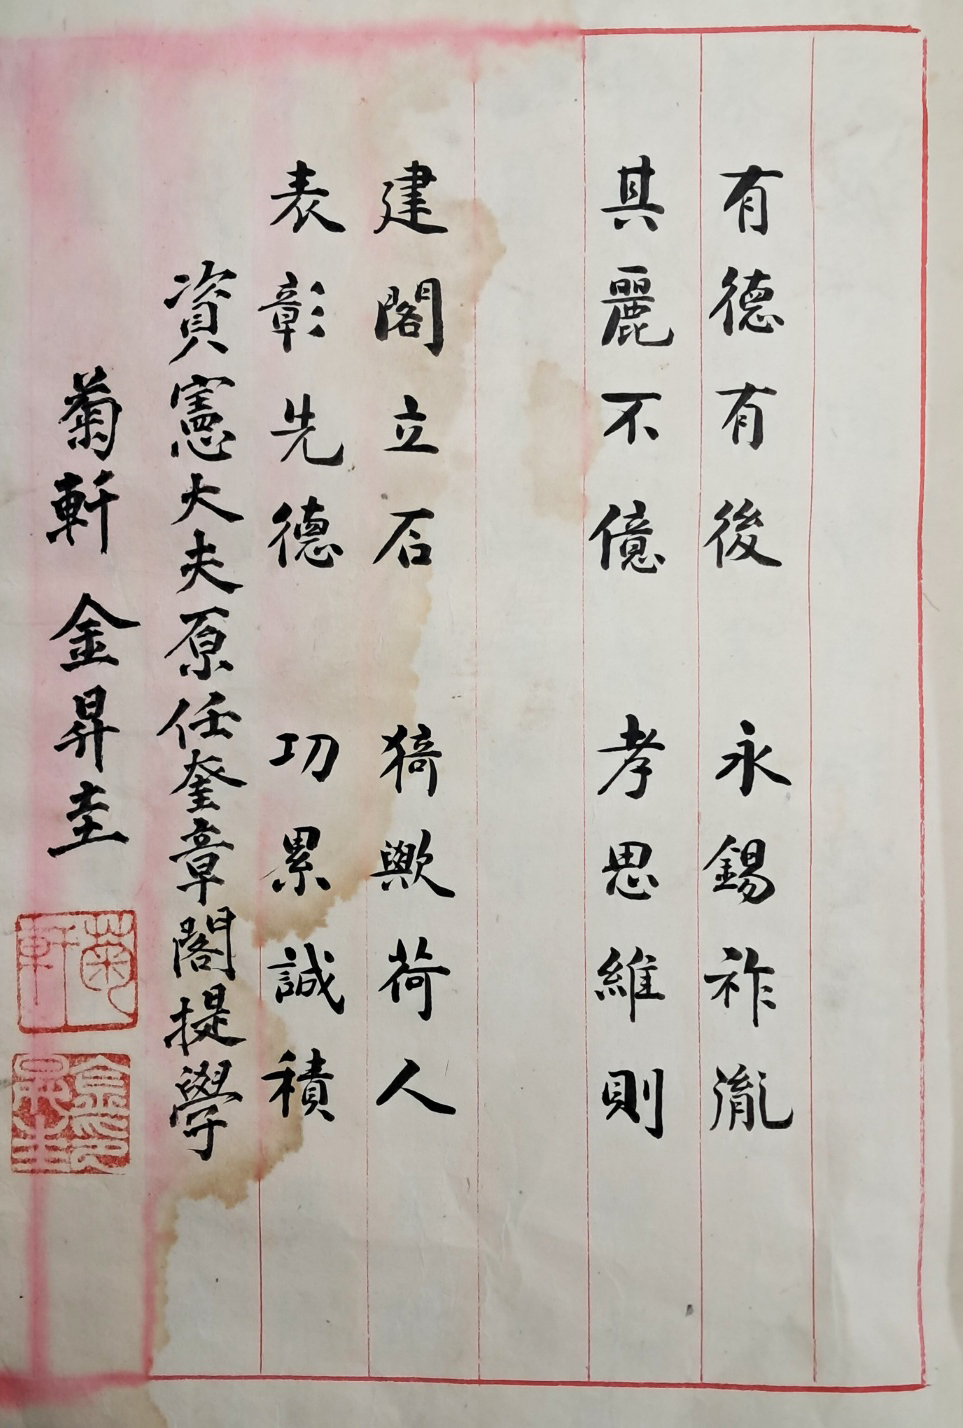 有德有後 永錫祚胤
其麗不億 孝思維則
建閣立石 猗歟荷人
表彰先德 功累誠積
資憲大夫原任奎章閣提學
菊軒 金昇圭
菊軒
金昇圭印